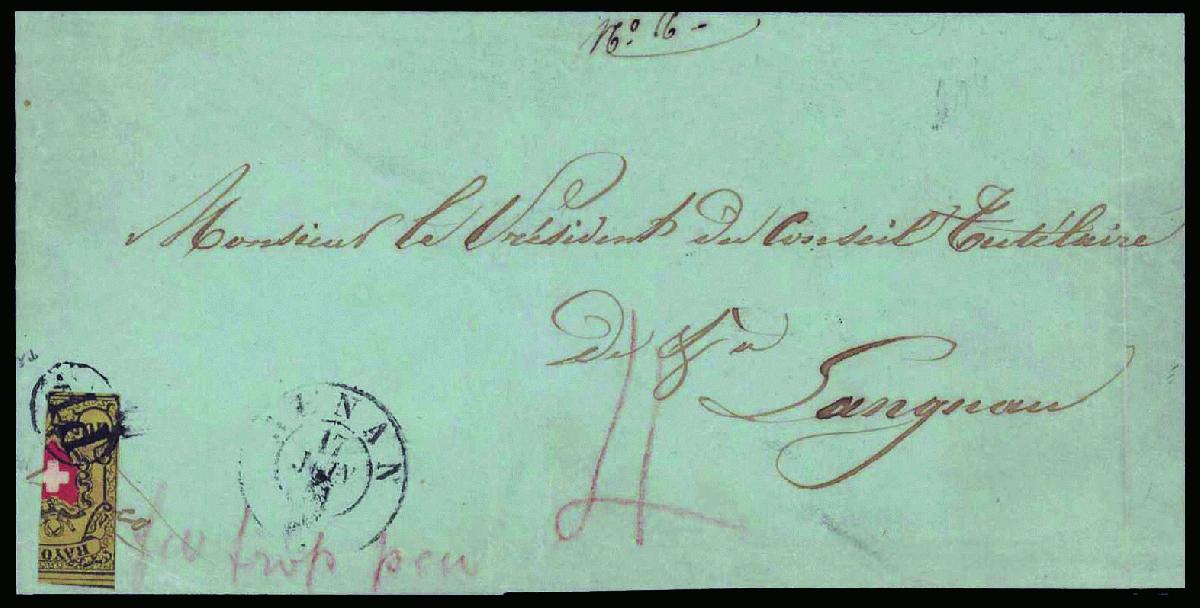 No. 16 -
Monsieur le Président du Conseil Tutélaire
de & a
Langnau
RENAN
17
JUIN
PD
RAYO
4
trop peu